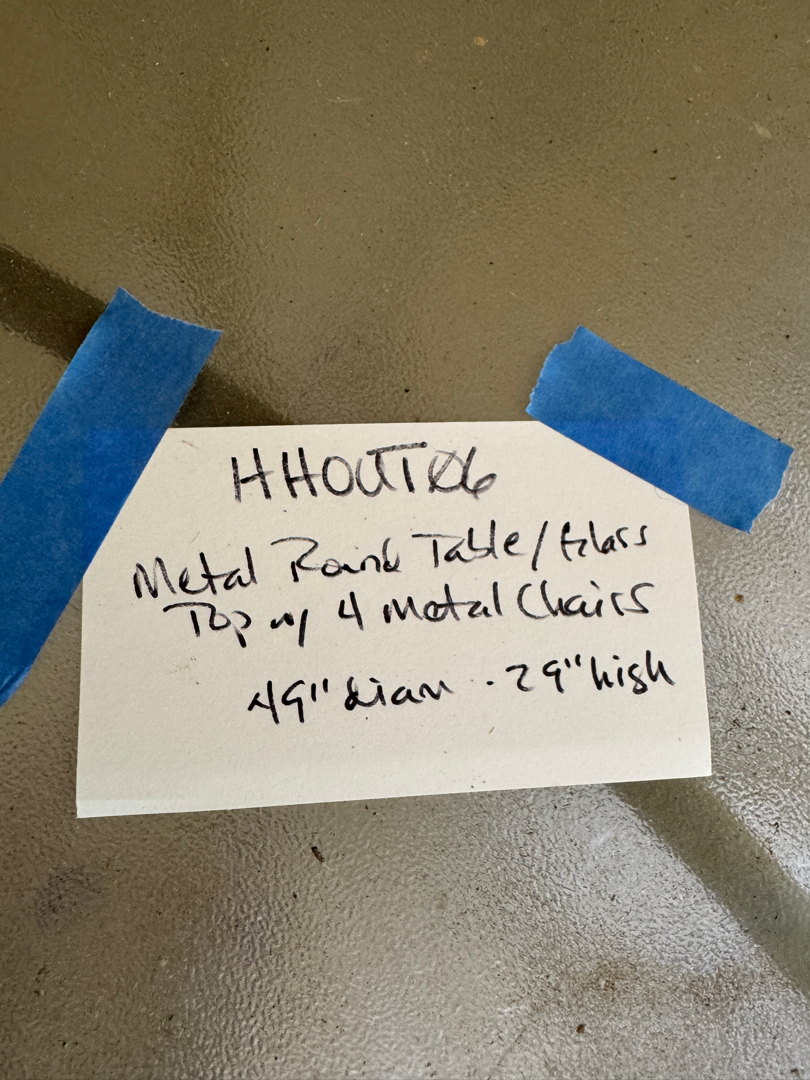 HHOUT06
Metal Round Table/Glass
Top w/ 4 Metal Chairs
49" diam - 29" high